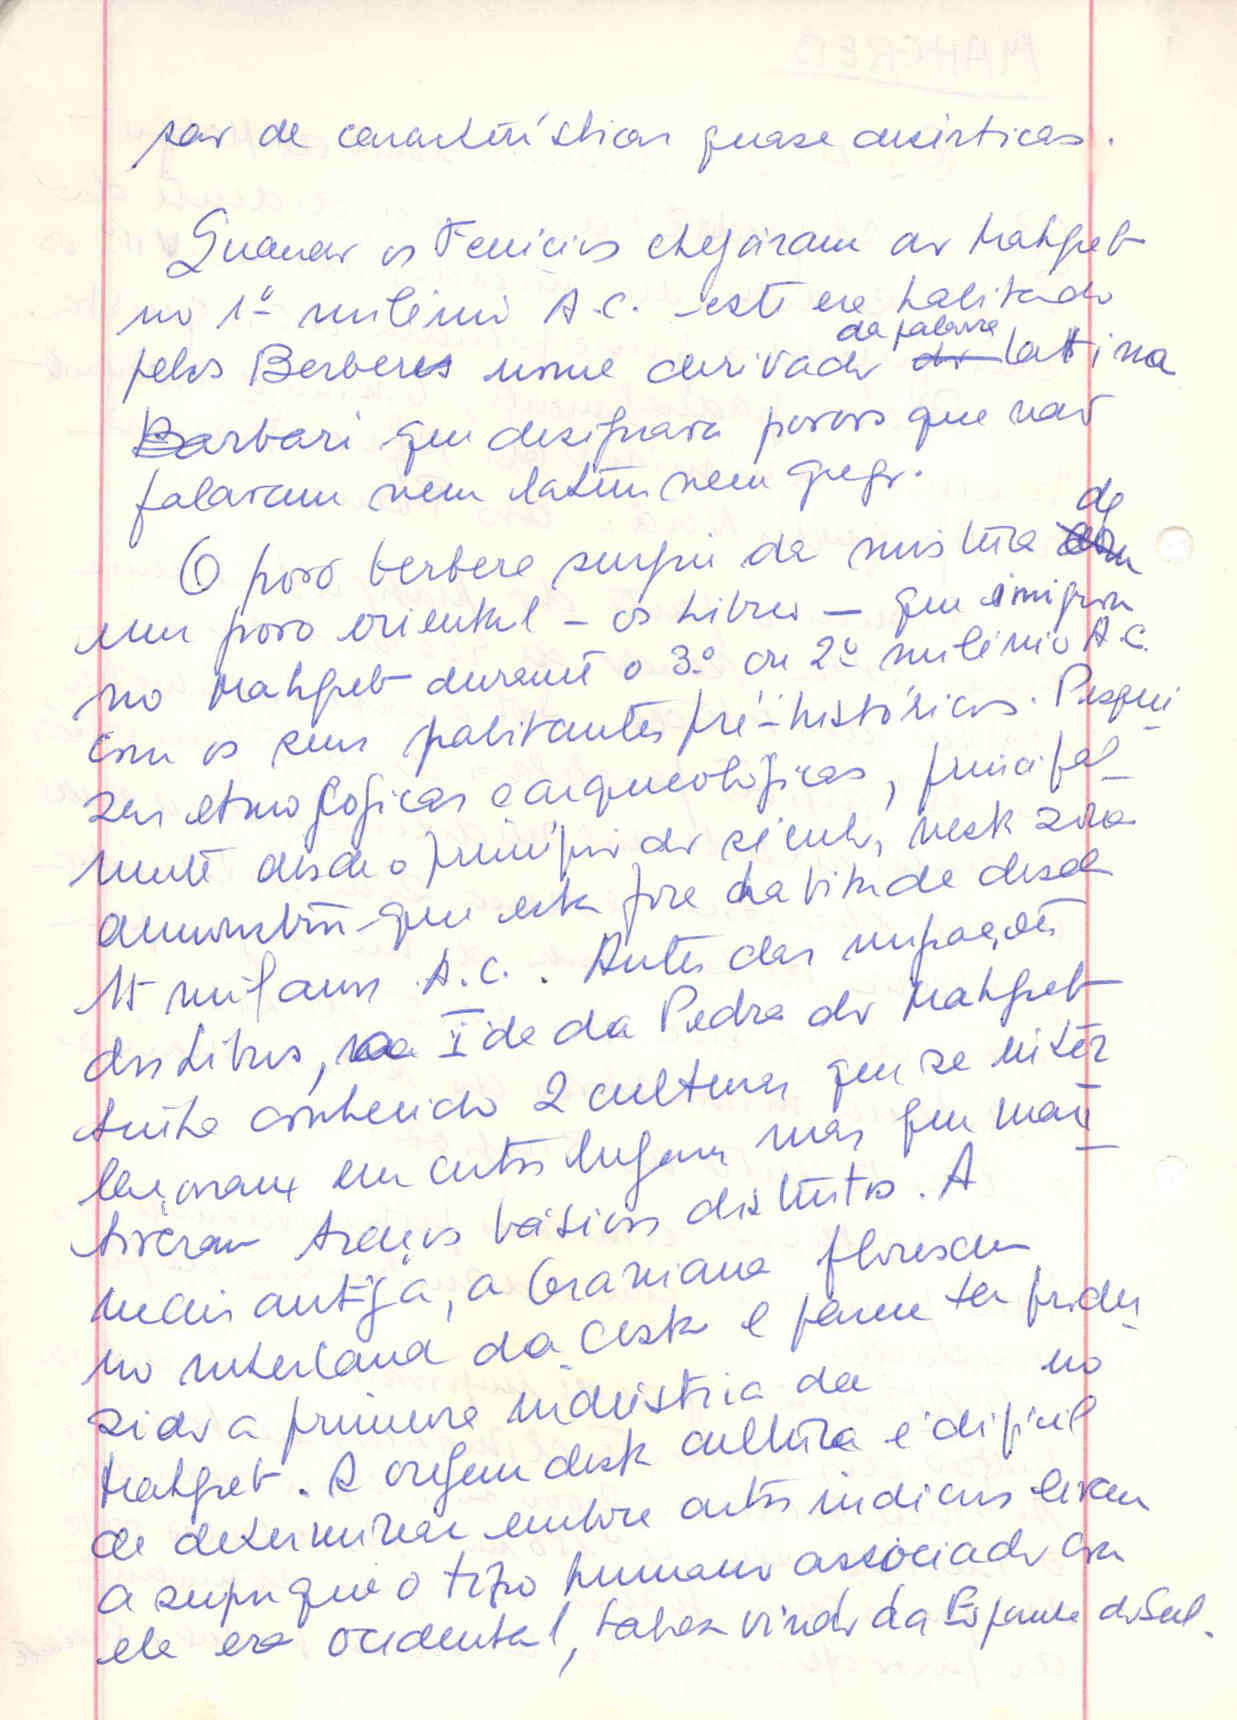 são de características quase desérticas.
Quando os Fenícios chegáram ao Mahgreb
no 1º milénio A.C. este era habitado
pelos Berberes nome derivado da palavra latina
Barbari que designava povos que não
falavam nem latim nem grego.
O povo berbere surgiu da mistura de
um povo oriental - os Líbios - que imigrou
no Mahgreb durante o 3º ou 2º milénio A.C.
com os seus habitantes pré-históricos. Pesqui
sas etnológicas e arqueológicas, principal_
mente desde o princípio do século, nesta zona
demonstrou que esta fora habitada desde
15 mil anos A.C.. Antes das migrações
dos Líbios, a Idade da Pedra do Mahgreb
tinha conhecido 2 culturas que se inter
laçaram em certos lugares mas que man_
tiveram traços básicos distintos. A
mais antiga, a Oraniana floresceu
no interland da costa e parece ter produ_
zido a primeira indústria da no
Mahgreb. A origem desta cultura é difícil
de determinar embora certos indícios levem
a supor que o tipo humano associado com
ela era ocidental, talvez vindo da Espanha do Sul.